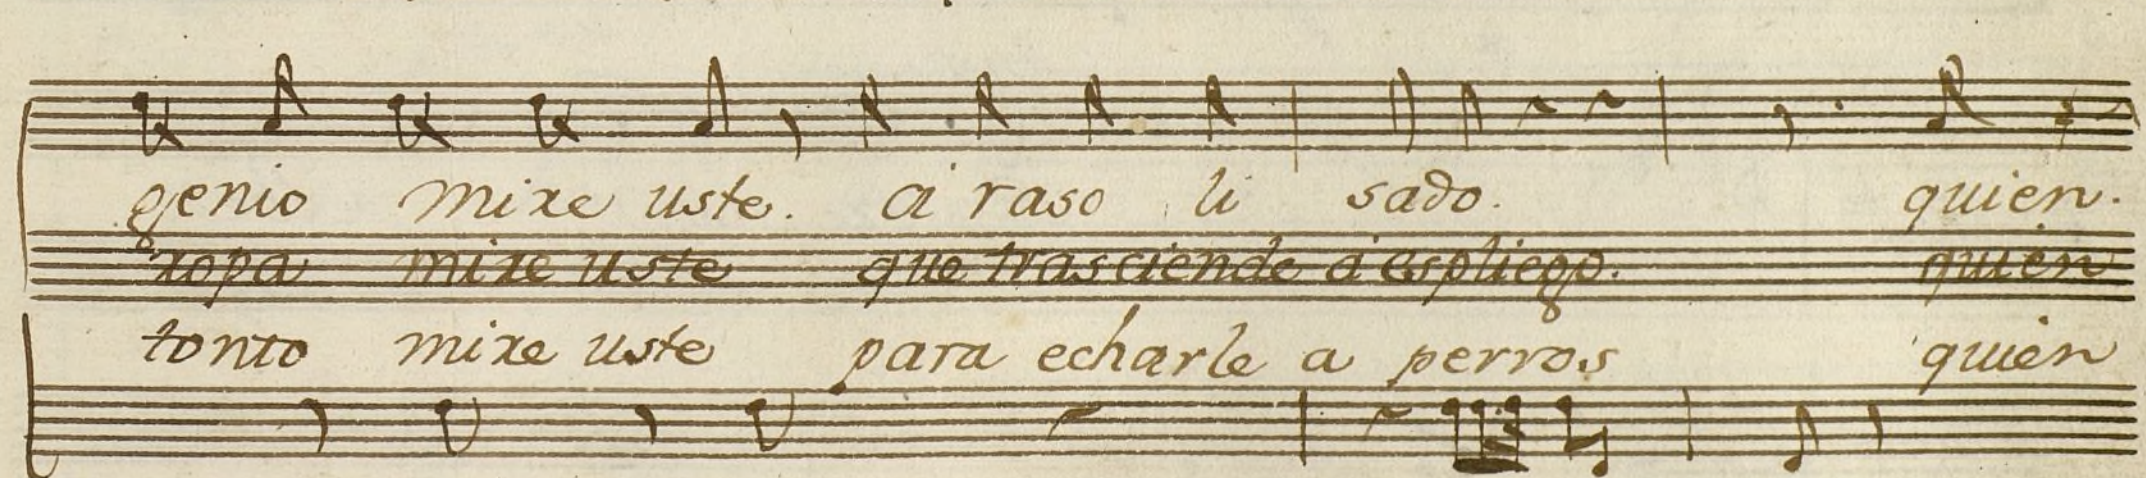 genio mire uste. a raso li sado. quien.
ropa mire uste que trasciende á espliego. quien
tonto mire uste para echarle a perros quien